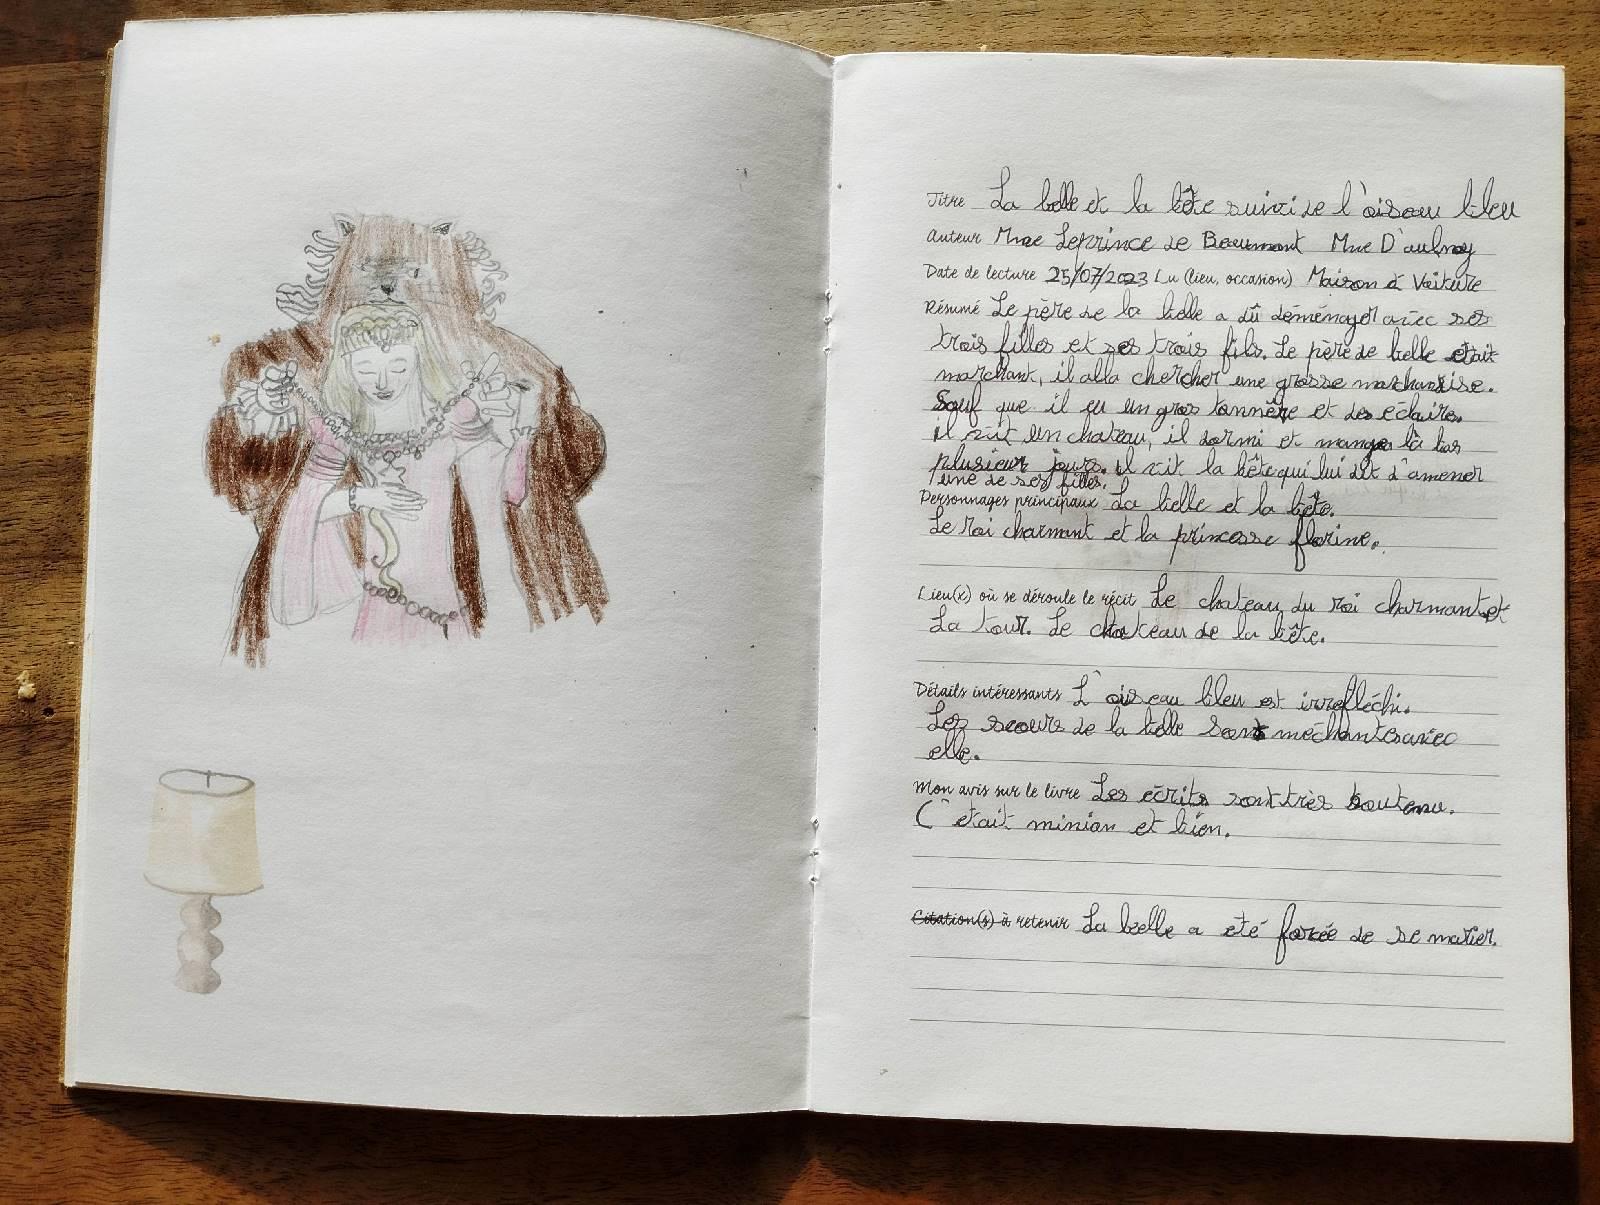 Titre La belle et la bête suivi de l'oiseau bleu
Auteur Mme Leprince de Beaumont Mme D'aulnoy
Date de lecture 25/07/2023 Lu (lieu, occasion) Maison à Voiture
Résumé Le père de la belle a dû déménager avec ses
trois filles et ses trois fils. Le père de belle était
marchant, il alla chercher une grosse marchandise.
Sauf que il eu un gros tonnère et des éclaire.
il vit un chateau, il dormi et mangea là bas
plusieur jours. il vit la bête qui lui dit d'amener
une de ses filles.
Personnages principaux La belle et la bête.
Le roi charmant et la princesse florine.
Lieu(x) où se déroule le récit Le chateau du roi charmant et
La tour. Le chateau de la bête.
Détails intéressants L'oiseau bleu est irrefléchi.
Les soeurs de la belle sont méchantes avec
elle.
Mon avis sur le livre Les écrits sont très soutenu.
C'était minion et bien.
Citation(s) à retenir La belle a été forcée de se marier.